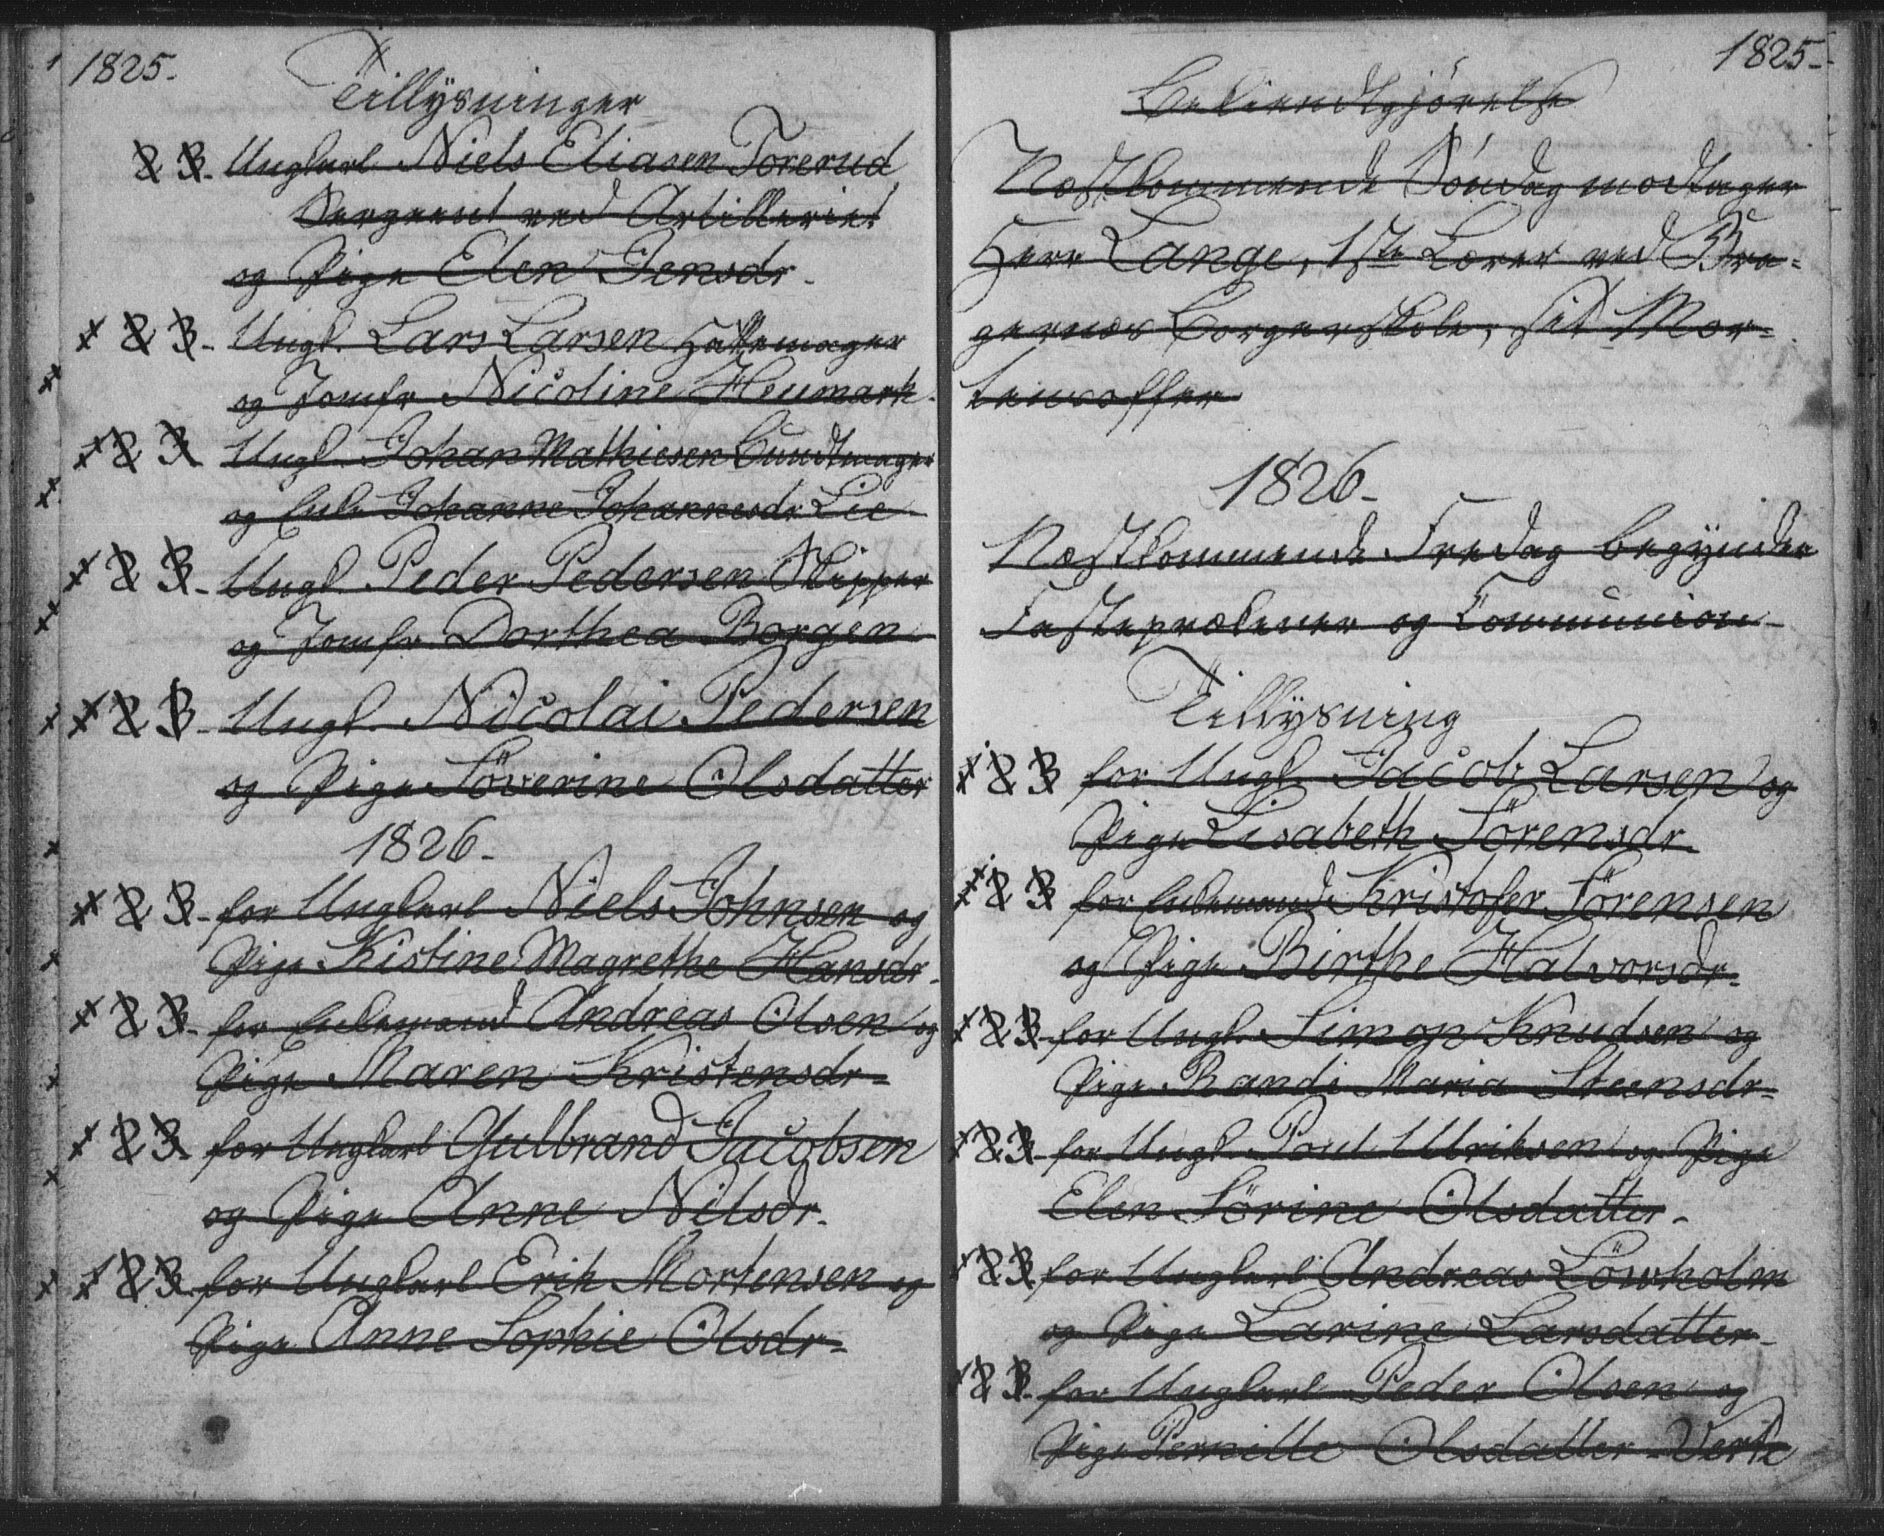 1825.
Tillysninger
Ungkarl Niels Eliasen Torerud
Sergeant ved Artilleriet
og Pige Elen Jensdr.
Ungk. Lars Larsen Hattemager
og Jomfr Nicoline Heumark.
Ungk. Johan Mathiesen Bundtmager
og Enke Johanne Johannesdr Lie
Ungk. Peder Pedersen Skipper
og Jomfr. Dorthea Borgen
Ungk. Nicolai Pedersen
og Pige Söverine Olsdatter
1826.
for Ungkarl Niels Johnsen og
Pige Kistine Magrethe Hansdr.
for Enkemand Andreas Olsen og
Pige Maren Kristensdr.
for Ungkarl Gulbrand Jacobsen
og Pige Anne Nilsdr.
for Ungkarl Erik Mortensen og
Pige Anne Sophie Olsdr.
1825.
Bekiendtgjörelse
Næstkommende Söndag modtager
Herr Lange, 1ste Lærer ved Bra-
gernæs Borgerskole, sit Mor-
tensoffer
1826.
Næstkommende Fredag begynder
Fasteprækener og Communion
Tillysning
for Ungk. Jacob Larsen og
Pige Lisabeth Sörensdr.
for Enkemand Kristofer Sörensen
og Pige Birthe Halvorsdr.
for Ungk. Simon Knudsen og
Pige Randi Maria Steensdr.
for Ungk. Poul Ulriksen og Pige
Elen Sörine Olsdatter.
for Ungkarl Andreas Löwholm
og Pige Larine Larsdatter.
for Ungkarl Peder Olsen og
Pige Pernille Olsdatter Verk